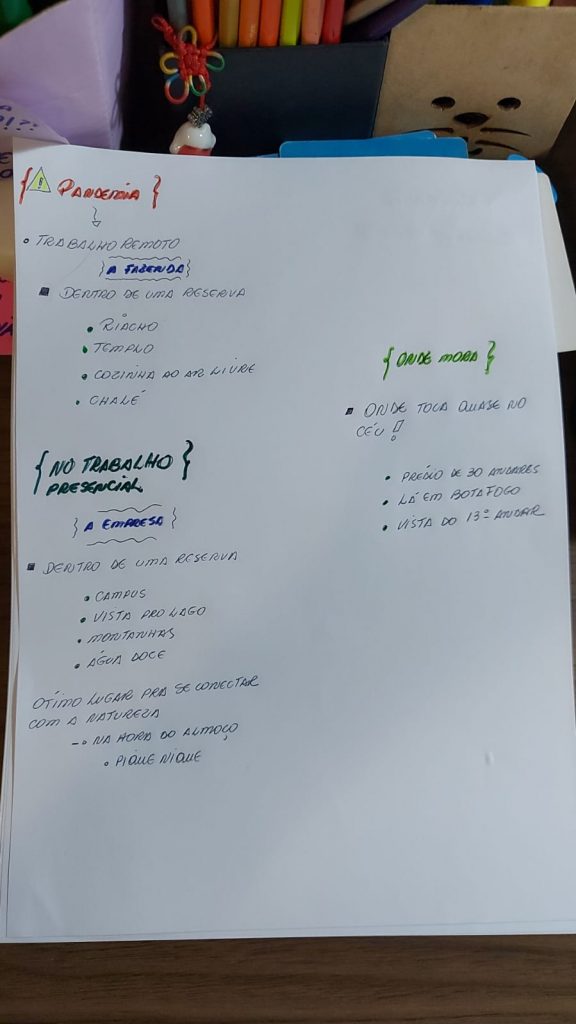 { Pandemia }
TRABALHO REMOTO
{ A FAZENDA }
DENTRO DE UMA RESERVA
RIACHO
TEMPLO
COZINHA AO AR LIVRE
CHALÉ
{ NO TRABALHO PRESENCIAL }
{ A EMPRESA }
DENTRO DE UMA RESERVA
CAMPUS
VISTA PRO LAGO
MONTANHAS
ÁGUA DOCE
OTIMO LUGAR PRA SE CONECTAR
COM A NATUREZA
NA HORA DO ALMOÇO
PIQUE NIQUE
{ ONDE MORA }
ONDE TOCA QUASE NO
CÉU!
PRÉDIO DE 30 ANDARES
LÁ EM BOTAFOGO
VISTA DO 13º ANDAR